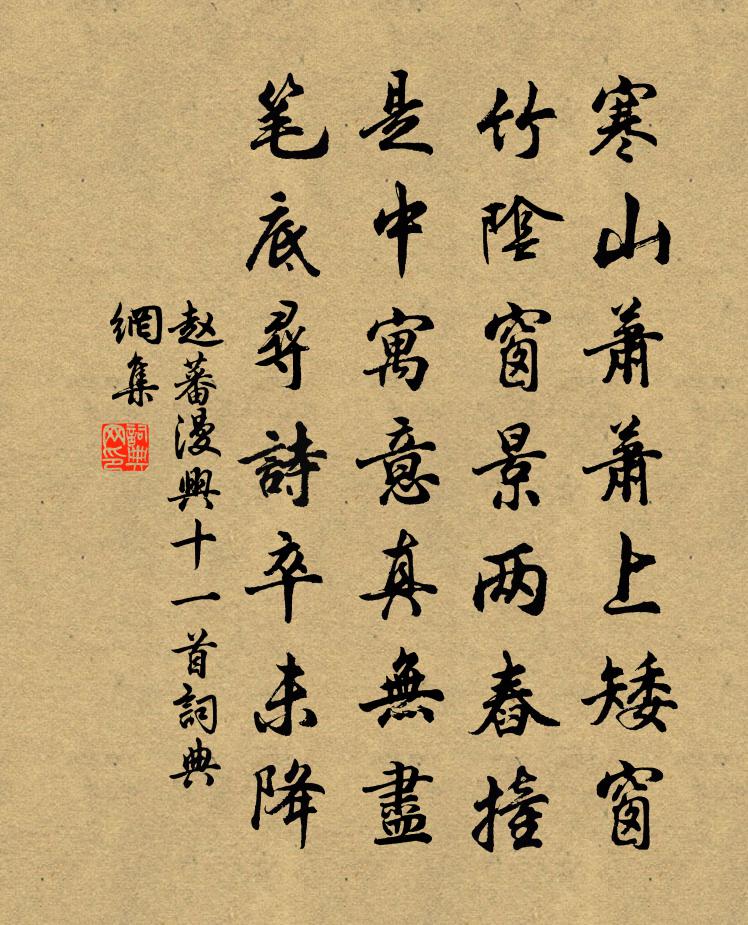 寒山蕭蕭上矮窗
竹陰窗景两舂撞
是中寓意真無盡
笔底尋詩卒未降
赵蕃漫興十一首詞典
網集
詞典
网印